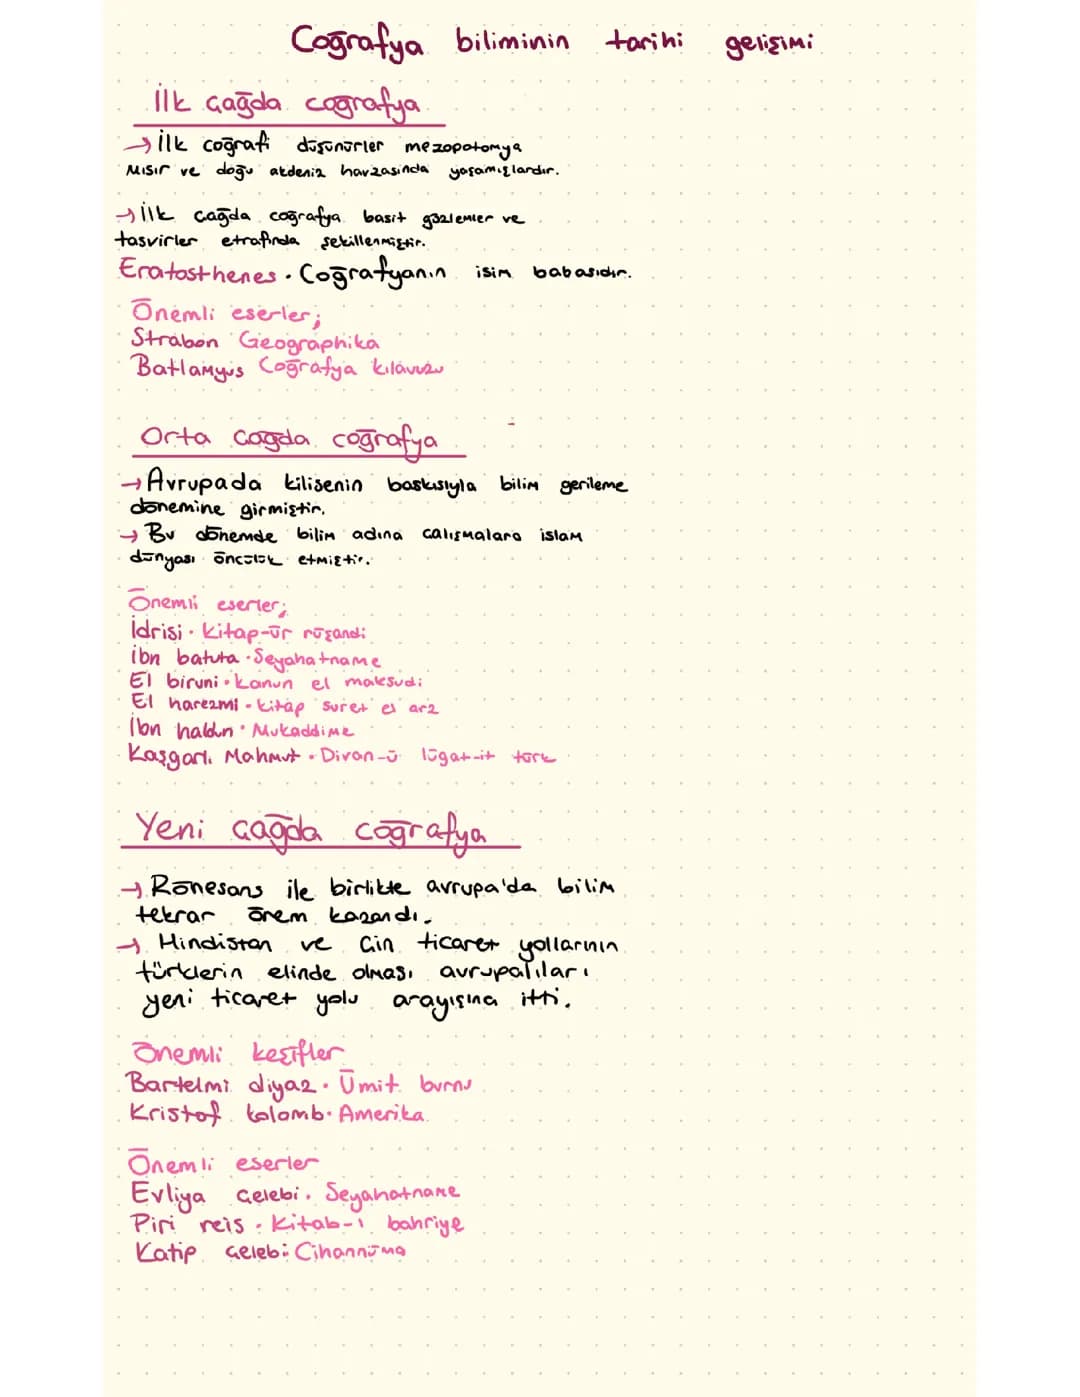 Coğrafya biliminin tarihi gelişimi
İlk çağda coğrafya
→ İlk coğrafi düşünürler mezopotamya
Mısır ve doğu akdeniz havzasında yaşamışlardır.
→ İlk çağda coğrafya basit gözlemler ve
tasvirler etrafında şekillenmiştir.
Eratosthenes • Coğrafyanın isim babasıdır.
Önemli eserler;
Strabon Geographika
Batlamyus Coğrafya kılavuzu
Orta çağda coğrafya
→ Avrupada kilisenin baskısıyla bilim gerileme
dönemine girmiştir.
→ Bu dönemde bilim adına çalışmalara islam
dünyası öncülük etmiştir.
Önemli eserler;
İdrisi • kitap-ür rüşandi
ibn batuta • Seyahatname
El biruni • kanun el maksudi
El harezmi • kitap suret el arz
İbn haldun • Mukaddime
Kaşgarlı Mahmut • Divan-ü lügat-it türk
Yeni çağda coğrafya
→ Rönesans ile birlikte avrupa'da bilim
tekrar önem kazandı.
→ Hindistan ve Çin ticaret yollarının
türklerin elinde olması avrupalıları
yeni ticaret yolu arayışına itti.
Önemli keşifler
Bartelmi diyaz • Ümit burnu
Kristof kolomb • Amerika
Önemli eserler
Evliya Çelebi • Seyahatname
Piri reis • Kitab-ı bahriye
Katip Çelebi : Cihannüma